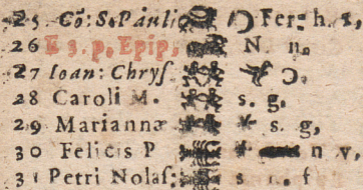 25 Cō: S. Pauli Fer: h. s,
26 E 3. p. Epip, N. n.
27 Ioan: Chrys
28 Caroli M. s. g,
29 Mariannæ * s. g,
30 Felicis P * n v,
31 Petri Nolas: s n. f